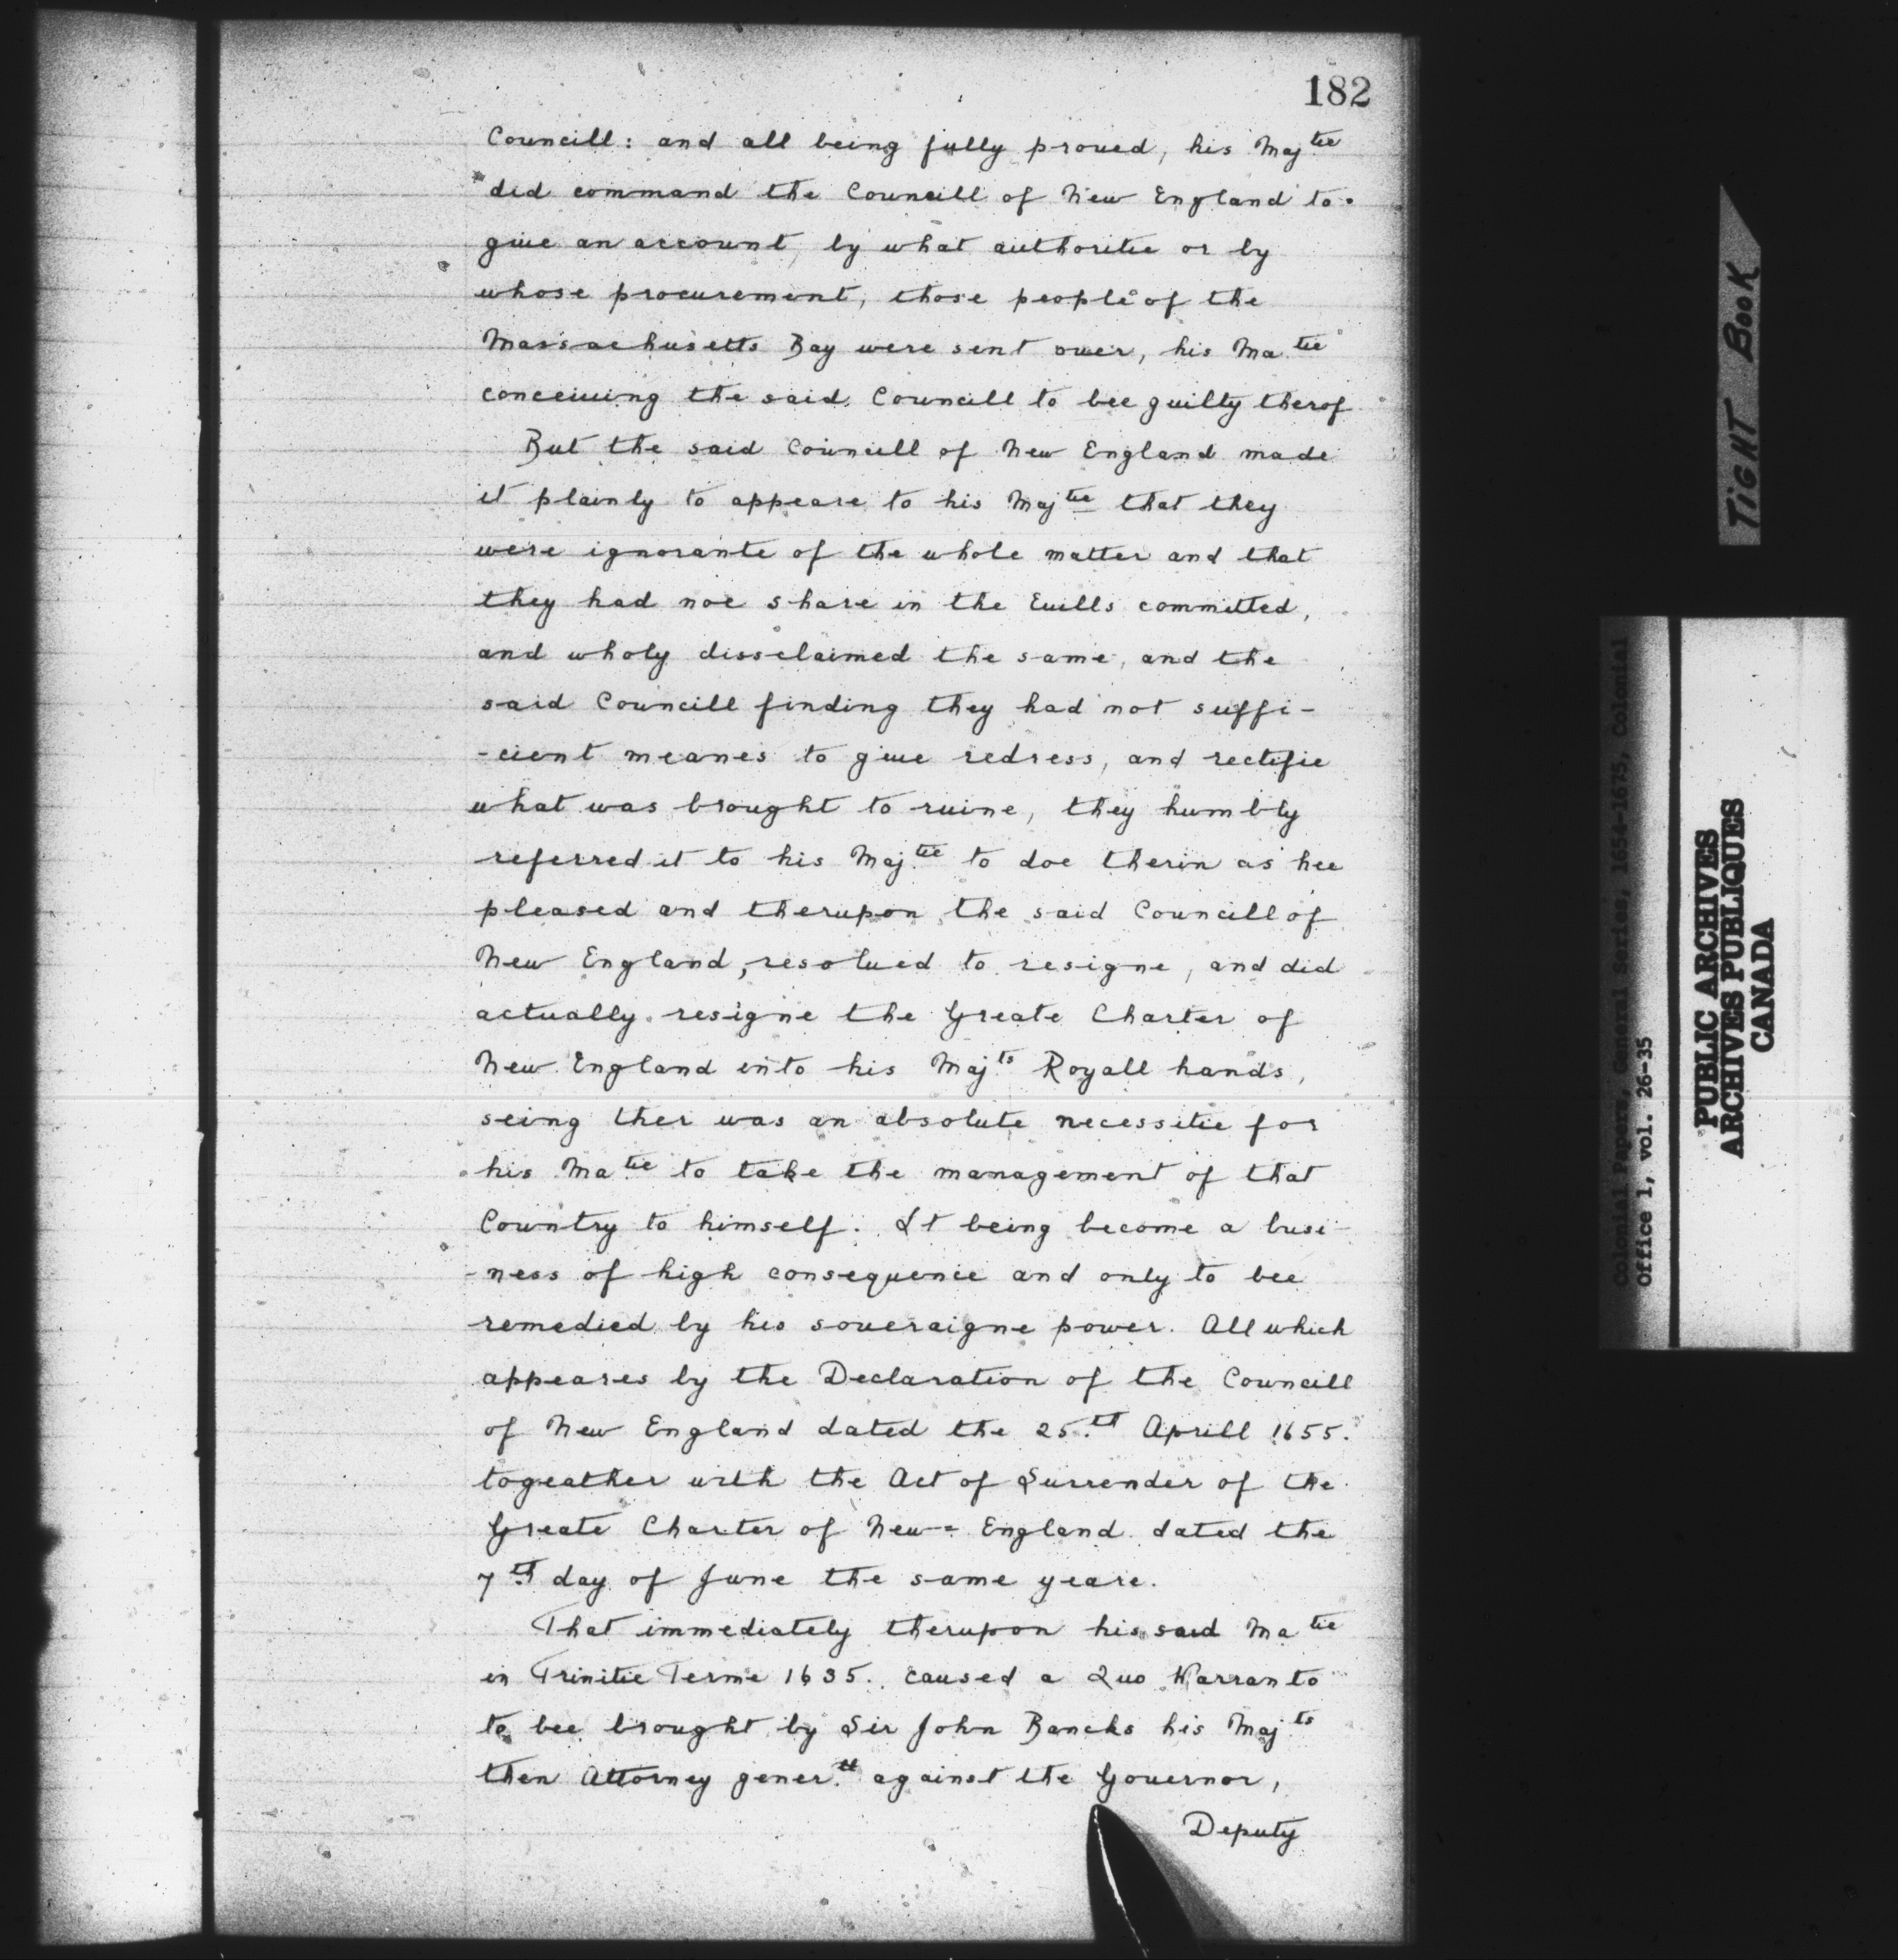 182
Councill: and all being fully proued, his Maj.tie
did command the Councill of New England to
giue an account, by what authoritie or by
whose procurement, those people of the
Massachusetts Bay were sent ouer, his Ma.tie
conceiuing the said Councill to bee guilty therof
But the said Councill of New England made
it plainly to appeare to his Maj.tie that they
were ignorante of the whole matter and that
they had noe share in the Euills committed,
and wholy dissclaimed the same, and the
said Councill finding they had not suffi-
-cient meanes to giue redress, and rectifie
what was brought to ruine, they humbly
referred it to his Maj.tie to doe therin as hee
pleased and therupon the said Councill of
New England, resolued to resigne, and did
actually resigne the Greate Charter of
New England into his Maj.ts Royall hands,
seing ther was an absolute necessitie for
his Ma.tie to take the management of that
Country to himself. It being become a busi-
-ness of high consequence and only to bee
remedied by his soueraigne power. All which
appeares by the Declaration of the Councill
of New England dated the 25.th Aprill 1655.
togeather with the Act of Surrender of the
Greate Charter of New= England dated the
7.th day of June the same yeare.
That immediately therupon his said Ma.tie
in Trinitie Terme 1635. caused a Quo Warranto
to bee brought by Sir John Bancks his Maj.ts
then Attorney gener.ll against the Gouernor,
Deputy
TIGHT BOOK
Colonial Papers, General Series, 1654-1675, Colonial
Office 1, vol. 26-35
PUBLIC ARCHIVES
ARCHIVES PUBLIQUES
CANADA